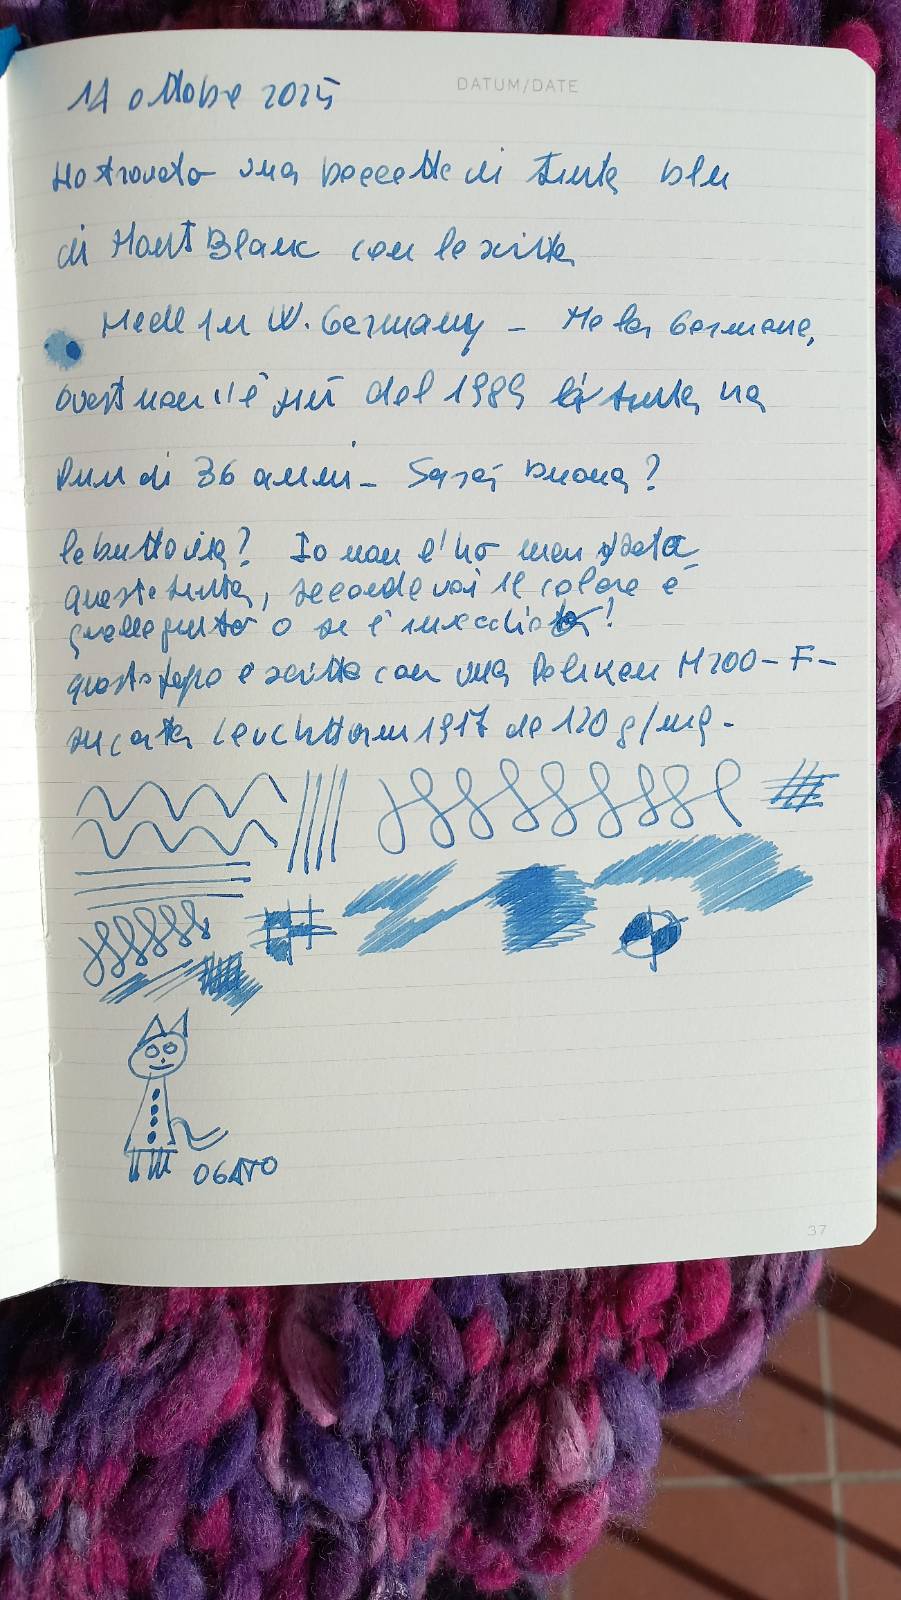 DATUM/DATE
14 ottobre 2025
Ho trovato una boccetta di tinta blu
di MontBlanc con la scritta
Made In W. Germany - Ma la Germania
ovest non c'è più dal 1989 la tinta ha
più di 36 anni - Sarà buona?
la butto via? Io non l'ho mai usata
questa tinta, secondo voi il colore è
quello giusto o si è invecchiato!
questo foglio è scritto con una Pelikan M200-F-
su carta Leuchtturm1917 da 120 g/mq-
OGATO
37